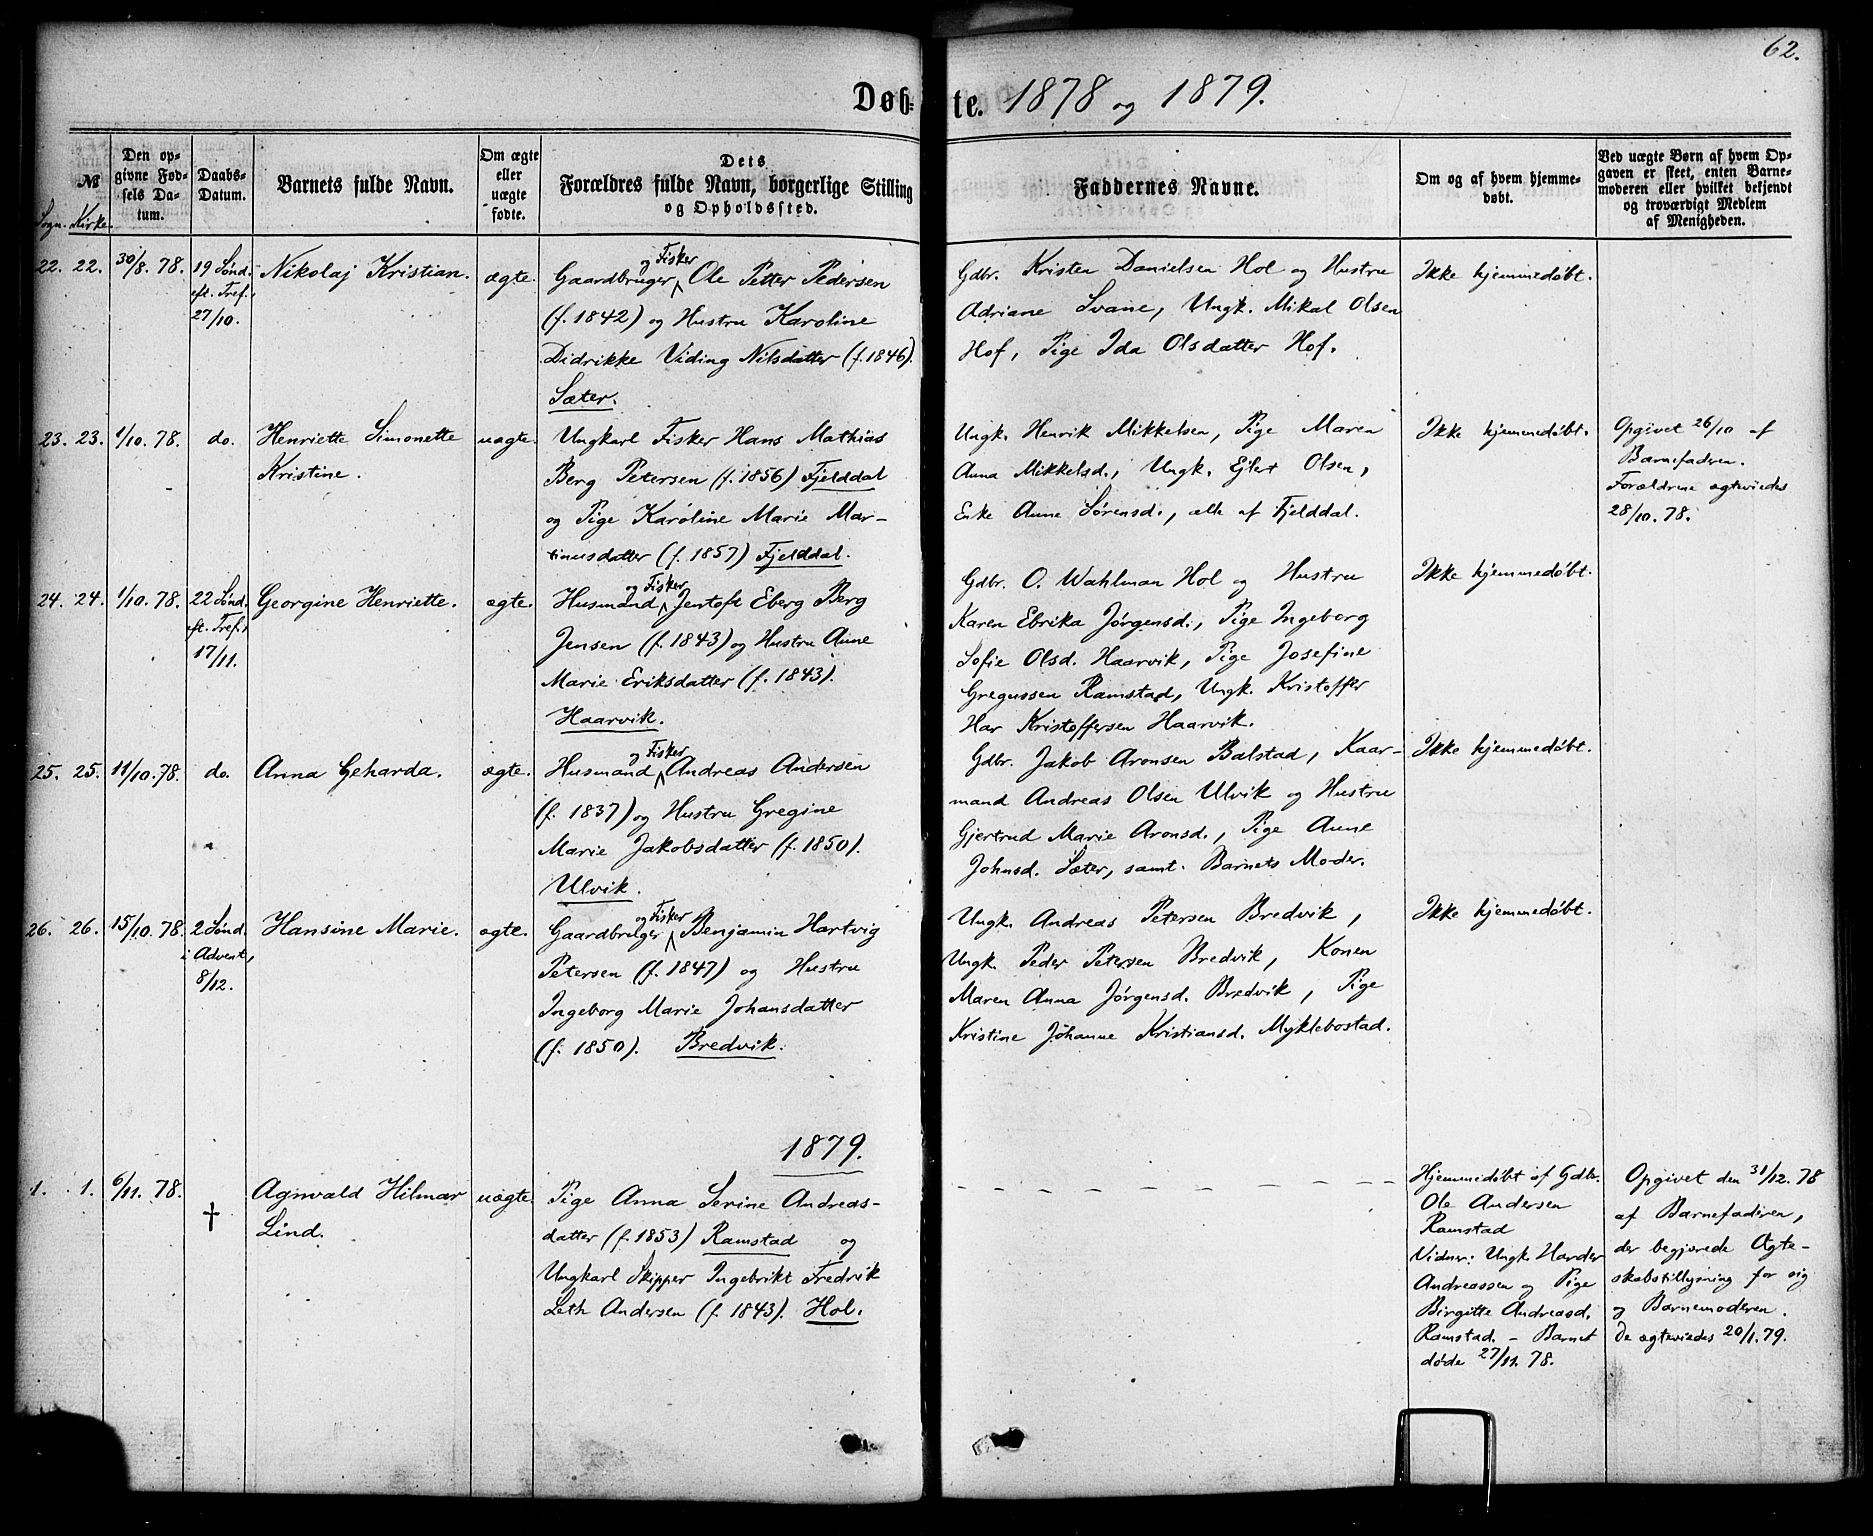 62.
Døb-
te. 1878 og 1879.
№
Sogn. Kirke.
Den op-
givne Fød-
sels Da-
tum.
Daabs-
Datum.
Barnets fulde Navn.
Om ægte
eller
uægte
fødte.
Dets
Forældres fulde Navn, borgerlige Stilling
og Opholdssted.
Faddernes Navne.
Om og af hvem hjemme-
døbt.
Ved uægte Børn af hvem Op-
gaven er skeet, enten Barne-
moderen eller hvilket bekjendt
og troværdigt Medlem
af Menigheden.
22. 22. 30/8. 78.
19 Sønd.
eft. Tref.,
27/10.
Nikolaj Kristian.
ægte.
og Fisker
Gaardbruger Ole Petter Pedersen
(f. 1842) og Hustru Karoline
Didrikke Viding Nilsdatter (f. 1846).
Sæter.
Gdbr. Kristen Danielsen Hol og Hustru
Adriane Svane, Ungk. Mikal Olsen
Hof, Pige Ida Olsdatter Hof.
Ikke hjemmedøbt.
23. 23. 1/10. 78.
do.
Henriette Simonette
Kristine.
uægte.
Ungkarl Fisker Hans Mathias
Berg Petersen (f. 1856) Fjelddal
og Pige Karoline Marie Mar-
tinusdatter (f. 1857) Fjelddal.
Ungk. Henrik Mikkelsen, Pige Maren
Anna Mikkelsd., Ungk. Ejlert Olsen,
Enke Anne Sørensd., alle af Fjelddal.
Ikke hjemmedøbt.
Opgivet 26/10 af
Barnefaderen.
Forældrene ægteviedes
28/10. 78.
24. 24. 1/10. 78.
22 Sønd.
eft. Tref.,
17/11.
Georgine Henriette.
ægte.
og Fisker
Husmand Jentoft Eberg Berg
Jensen (f. 1843) og Hustru Anne
Marie Eriksdatter (f. 1843).
Haarvik.
Gdbr. O. Wahlman Hol og Hustru
Karen Ebrika Jørgensd., Pige Ingeborg
Sofie Olsd. Haarvik, Pige Josefine
Gregussen Ramstad, Ungk. Kristoffer
Har Kristoffersen Haarvik.
Ikke hjemmedøbt.
25. 25. 11/10. 78.
do.
Anna Geharda.
ægte.
og Fisker
Husmand Andreas Andersen
(f. 1837) og Hustru Gregine
Marie Jakobsdatter (f. 1850).
Ulvik.
Gdbr. Jakob Aronsen Balstad, Kaar-
mand Andreas Olsen Ulvik og Hustru
Gjertrud Marie Aronsd., Pige Anne
Johnsd. Sæter, samt. Barnets Moder.
Ikke hjemmedøbt.
26. 26. 15/10. 78.
2 Sønd.
i Advent,
8/12.
Hansine Marie.
ægte.
og Fisker
Gaardbruger Benjamin Hartvig
Petersen (f. 1847) og Hustru
Ingeborg Marie Johansdatter
(f. 1850). Bredvik.
Ungk. Andreas Petersen Bredvik,
Ungk. Peder Petersen Bredvik, Konen
Maren Anna Jørgensd. Bredvik, Pige
Kristine Johanne Kristiansd. Myklebostad.
Ikke hjemmedøbt.
1879.
1. 1. 6/11. 78.
†
Aginvald Hilmar
Lind.
uægte.
Pige Anna Serine Andreas-
datter (f. 1853) Ramstad og
Ungkarl Skipper Ingebrikt Fredrik
Leth Andersen (f. 1843). Hol.
Hjemmedøbt af Gdbr.
Ole Andersen
Ramstad
Vidner: Ungk. Harder
Andreassen og Pige
Birgitte Andreasd.
Ramstad. - Barnet
døde 27/11. 78.
Opgivet den 31/12. 78
af Barnefaderen,
der begjærede Ægte-
skabstillysning for sig
og Barnemoderen.
De ægteviedes 20/1. 79.